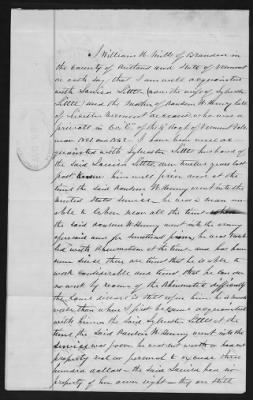 I William H. Smith of Brandon in
the County of Rutland and State of Vermont
on oath say that I am well acquainted
with Lauisa Little, (now the wife of Sylvester
Little) and the mother of Hanson W. Henry late
of Vermont who was a
private in Co. of the Regt of Vermont Vols
I have been well acquainted
with Sylvester Little husband of
the said Lauisa Little, over twelve years last
past him well prior and at the
time the said Hanson W. Henry went into the
United States service he was a man un-
able to labor near all the time
the said Hanson W. Henry went into the army
and for sometime prior, he was
with Rheumatism at the time and has been
ever since, there are times that he is able to
work considerable and times that he can do
no work by reason of the Rheumatic difficulty
the same disease is still upon him he is much
than when I first became acquainted
with him, the said Sylvester Little at the
time the said Hanson W. Henry went into the
service was poor he was not worth
property real or personal to exceed three
hundred dollars the said Lauisa had no
property of her own right they are still